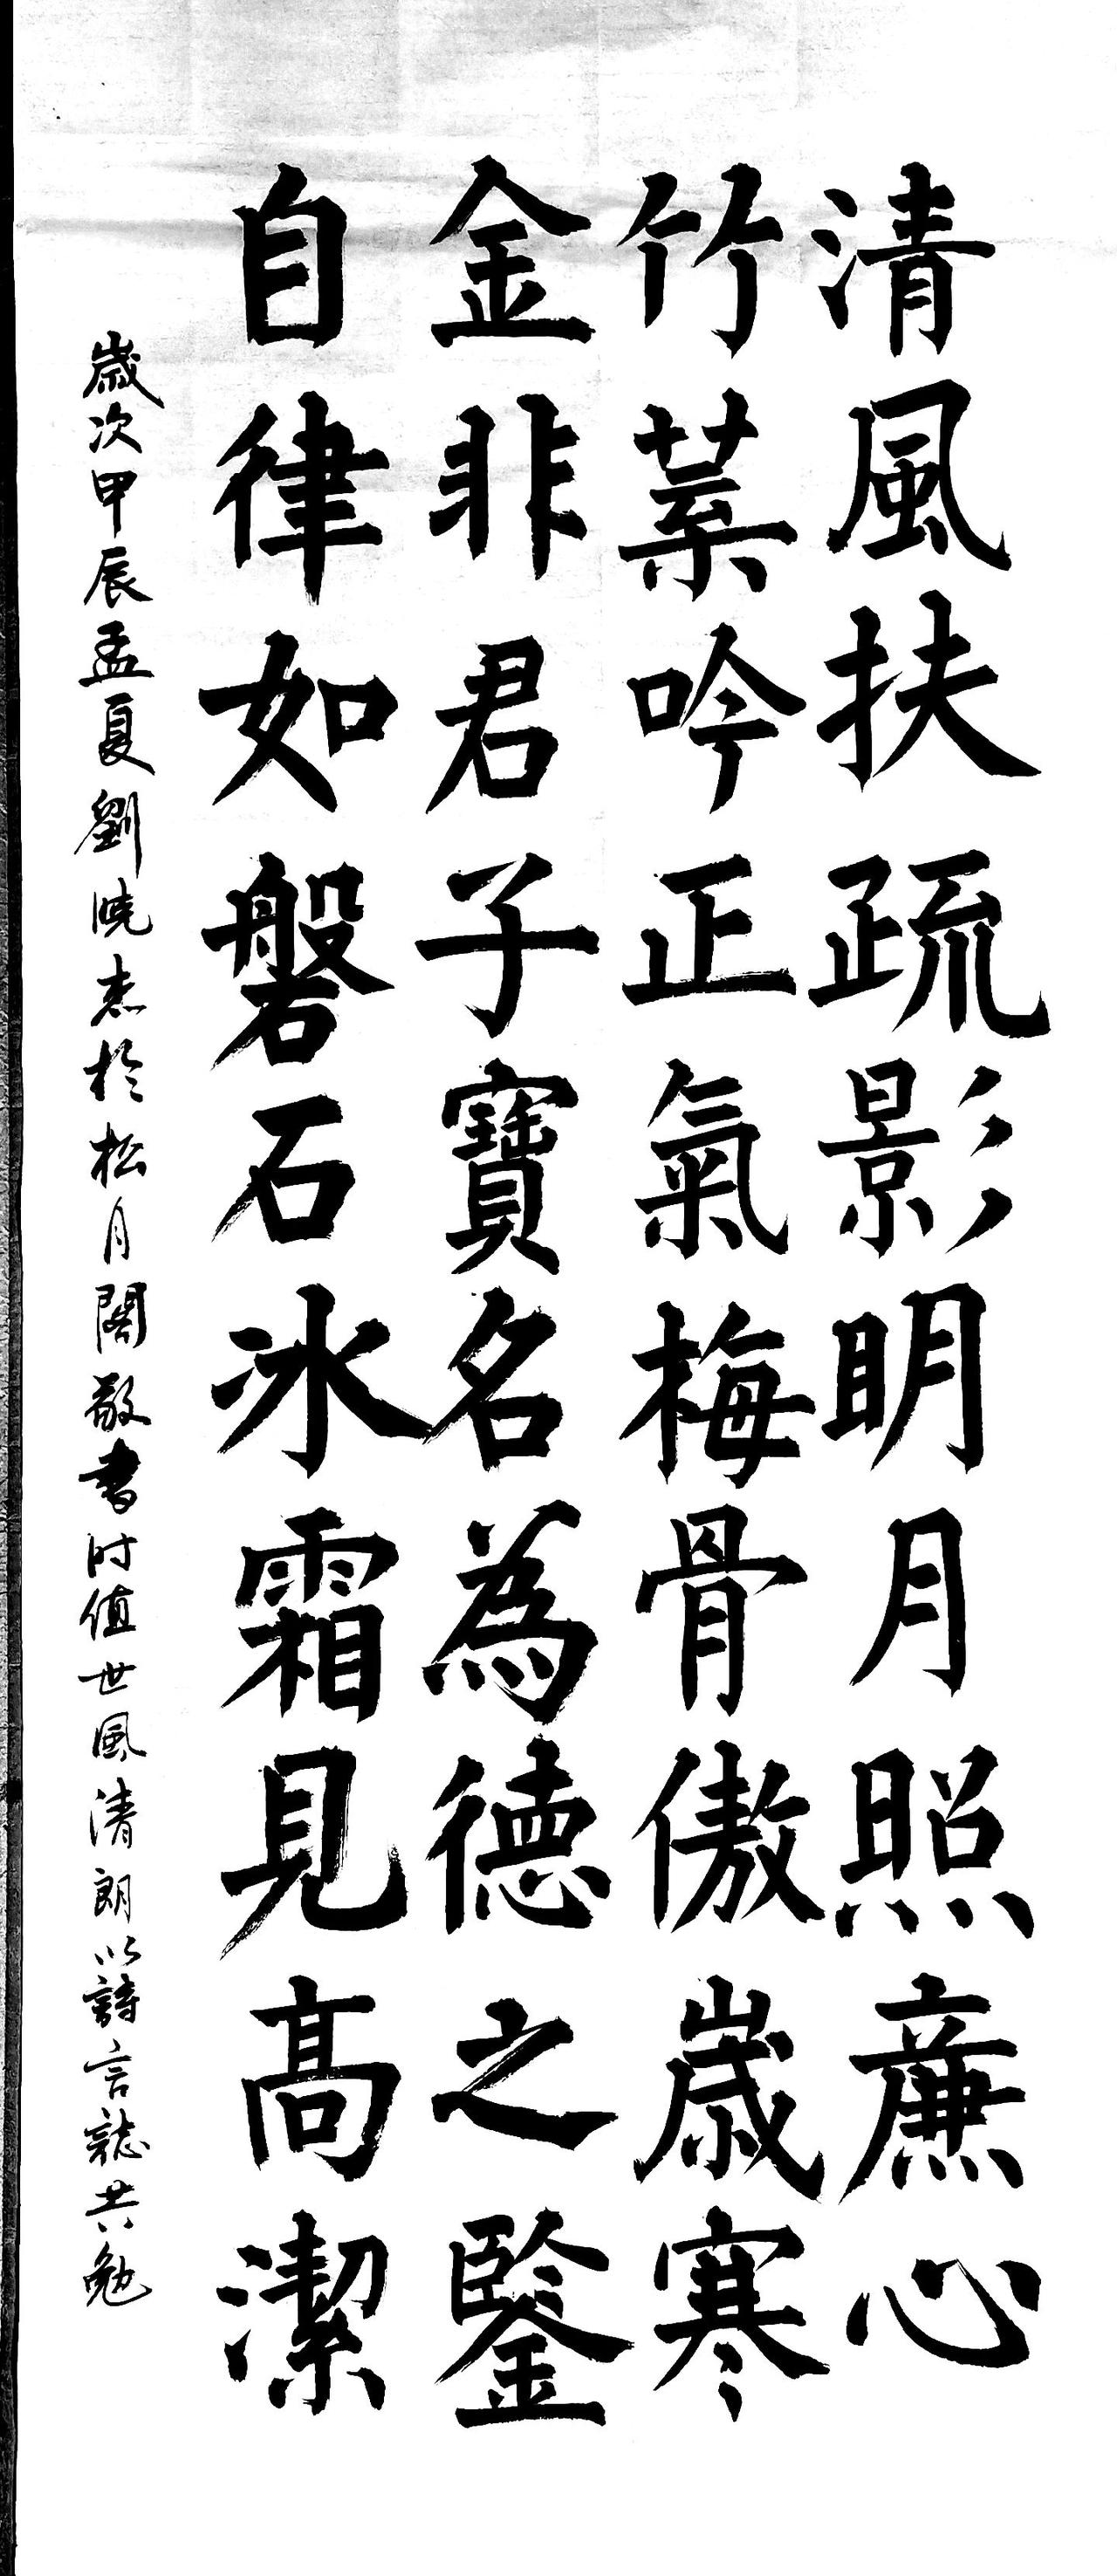 清風扶疏影明月照廉心
竹葉吟正氣梅骨傲歲寒
金非君子寶名為德之鑒
自律如磐石冰霜見高潔
歲次甲辰孟夏劉曉志於松月閣敬書时值世風清朗以詩言誌共勉